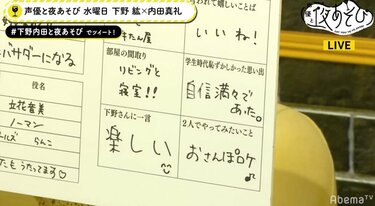 声優と夜あそび 水曜日 下野 紘×内田真礼
#下野内田と夜あそび でツイート!
夜あそび
LIVE
バサダーになる
たん屋
われて嬉しいことば
いいね!
部屋の間取り
リビングと
寝室!!
学生時代恥ずかしかった思い出
自信満々で
あった。
立花音美
ノーマン
らんこ
たたもうたってます♡
下野さんに一言
楽しい
2人でやってみたいこと
おさんぽロケ♪
AbemaTV